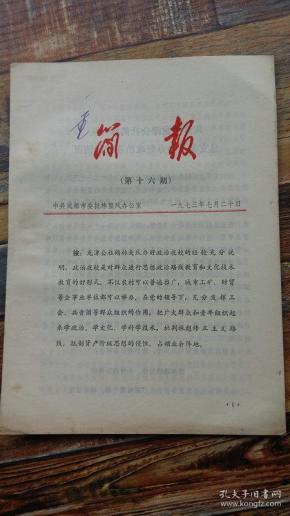 简报
(第十六期)
中共成都市委批林整风办公室 一九七三年七月二十日
按：龙潭公社鹤林大队办好政治夜校的经验充分说
明，政治夜校是对群众进行思想政治路线教育和文化技术
教育的好形式，不仅农村可以普遍推广，城市工矿、财贸
等企事业单位都可以举办。在党的领导下，充分发挥工
会、共青团等群众组织的作用，把广大群众和青年组织起
来学政治、学文化、学科学技术，批判林彪修正主义路
线，抵制资产阶级思想的侵蚀，占领业余阵地。
·1·
孔夫子旧书网